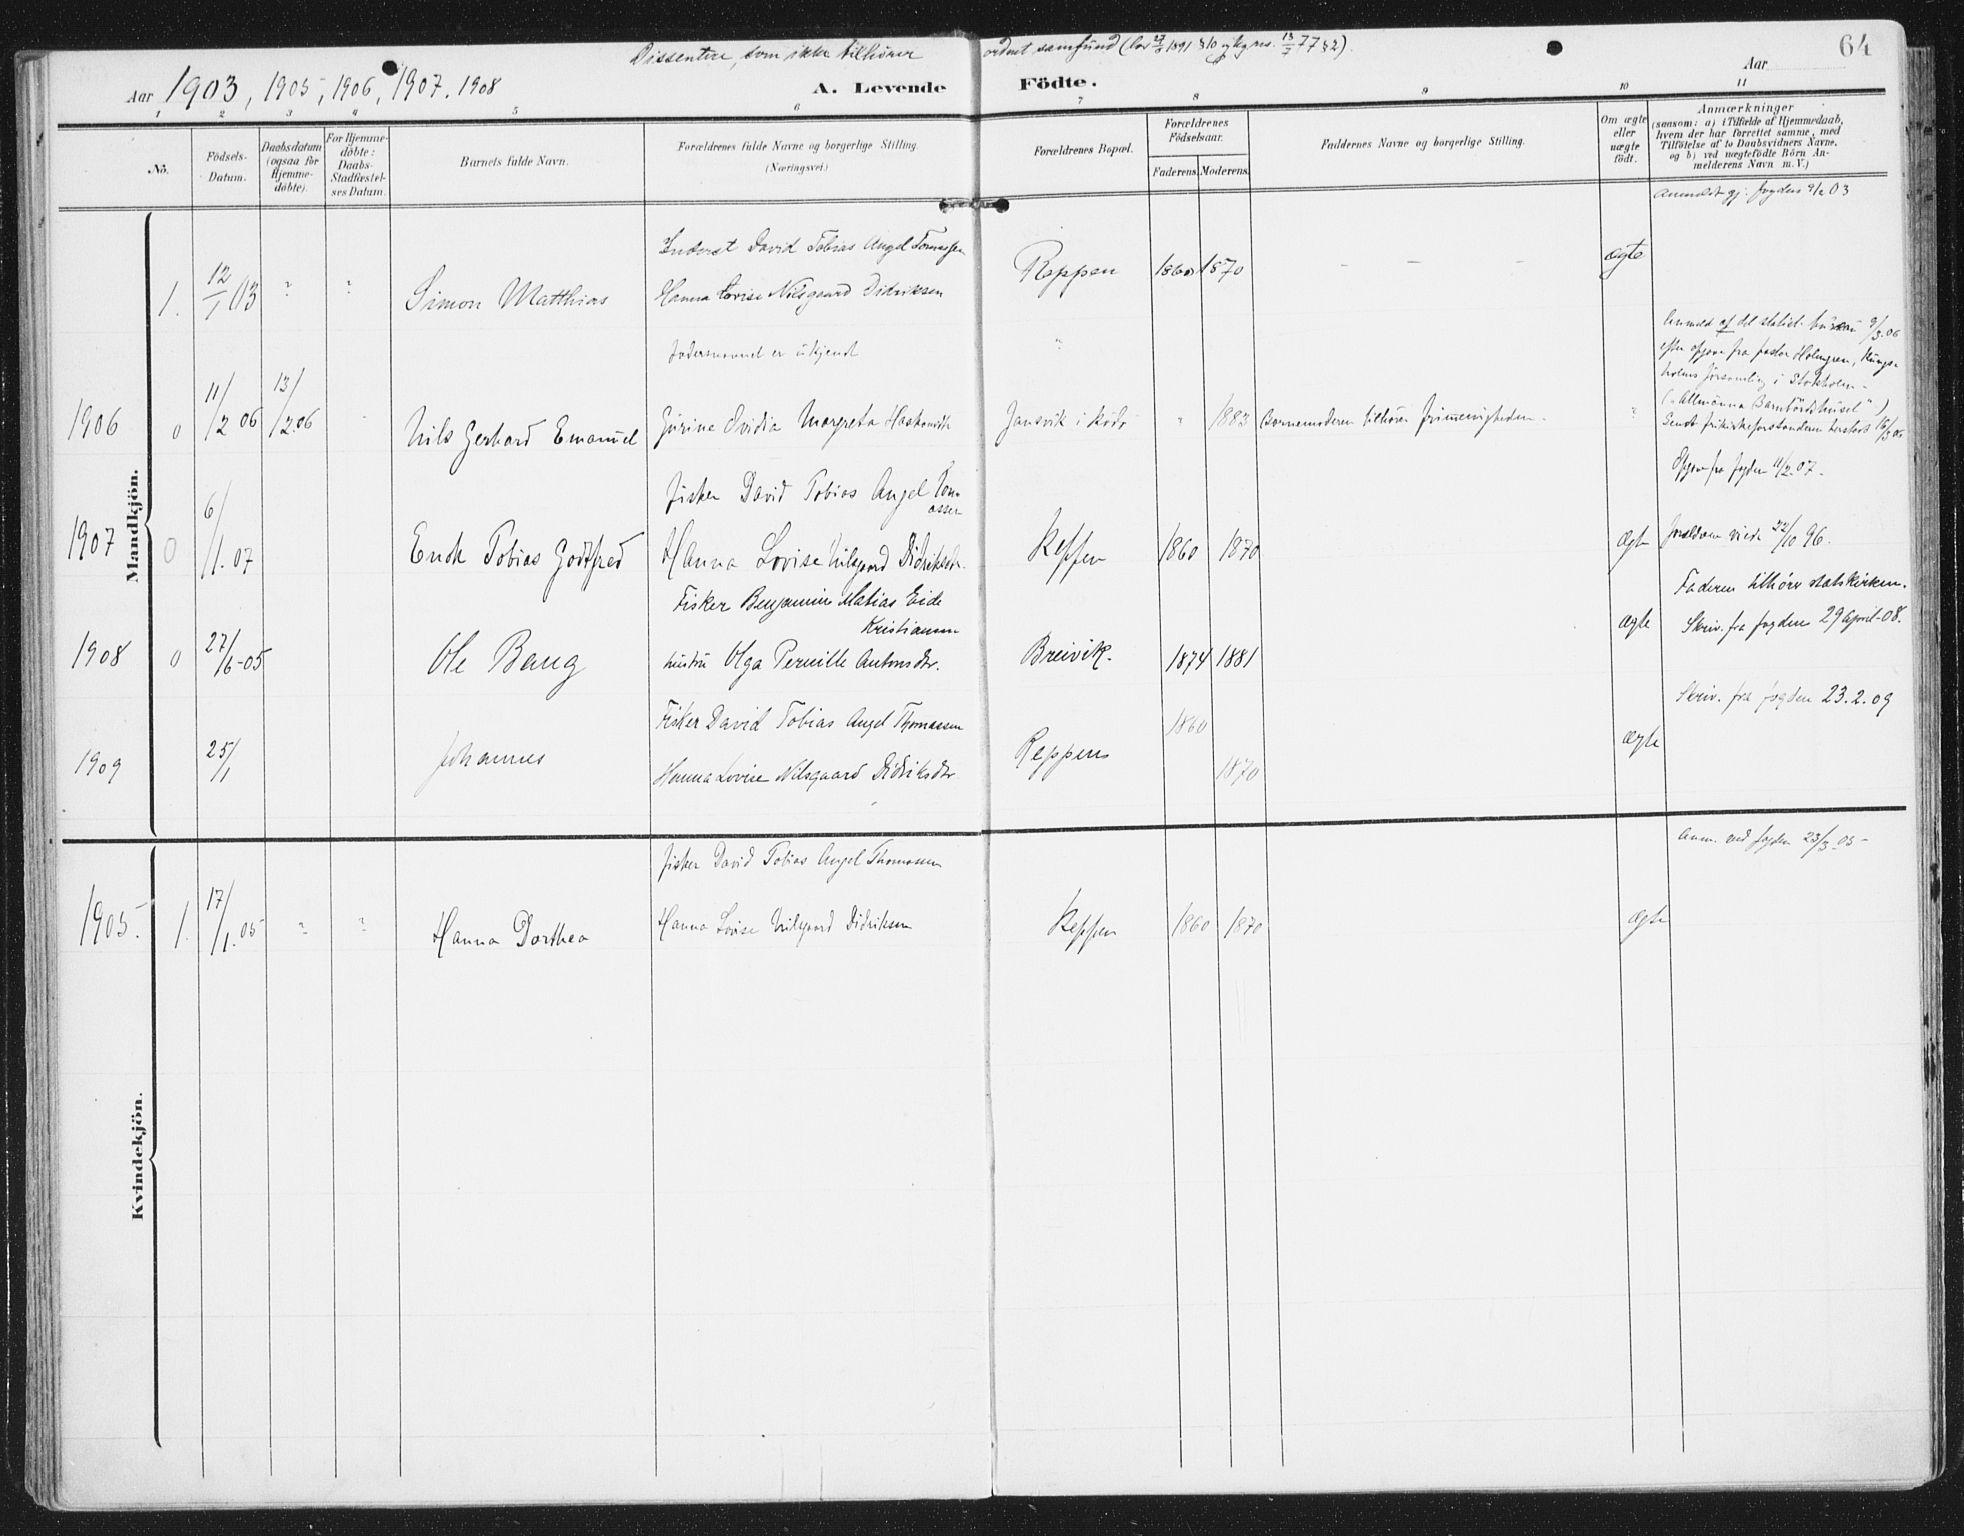 Dissentere, som ikke tilhører ordnet samfund (lov 27/6 1891 § 10 13/7 77 § 2).
64
Aar 1903, 1905, 1906, 1907, 1908
A. Levende Födte.
Aar
1 2 3 4 5 6 7 8 9 10 11
No.
Födsels-Datum.
Daabsdatum (ogsaa for Hjemme-döbte).
For Hjemme-döbte: Daabs-Stadfæstel-ses Datum.
Barnets fulde Navn.
Forældrenes fulde Navne og borgerlige Stilling.
(Næringsvei.)
Forældrenes Bopæl.
Forældrenes Födselsaar.
Faderens. Moderens.
Faddernes Navne og borgerlige Stilling.
Om ægte eller uægte födt.
Anmærkninger
(saasom: a) i Tilfælde af Hjemmedaab,
hvem der har forrettet samme, med
Tilföielse af to Daabsvidners Navne,
og b) ved uægtefödte Börn An-
melderens Navn m. V.)
Mandkjön.
Anmeldt gj. fogden 9/2 03
Inderst David Tobias Angel Tomassen
1. 12/1 03 " " Simon Matthias
Hanna Lovise Nilsgaard Didriksen
Reppen 1860 1870 — — — ægte
Fadernavnet er ukjendt "
1906 0 11/2 06 13/2 06 Nils Gerhard Emanuel
Gurine Ovidia Margreta
Jansvik i " 1883 Barnemoderen tilhører frimenigheden. "
Anmeld af det statist. bureau 9/3.06
efter opgave fra pastor Holmgren, Kungs-
holms församling i Stockholm -
("Allmänna Barnbördshuset")
Opgave fra fogden 11/2.07.
Fisker David Tobias Angel Tom-
assen
1907 0 6/1.07 Enok Tobias Godtfred
Hanna Lovise Nilsgaard Didriksdr.
Reppen 1860 1870 ægte
Forældrene viede 22/10 96.
Fisker Benjamin Matias Eide
Kristiansen
1908 0 27/6-05 Ole Bang
hustru Olga Pernille Antonsdr.
Breivik. 1874 1881 ægte
Faderen tilhører statskirken.
Skriv. fra fogden 29 april-08.
Fisker David Tobias Angel Thomassen
1909 25/1 Johannes
Hanna Lovise Nilsgaard Didriksdtr.
Reppen 1860 1870 ægte
Skriv. fra fogden 23.2.09
Kvindekjön.
Fisker David Tobias Angel Thomassen
1905. 1. 17/1.05 " " Hanna Dorthea
Hanna Lovise Nilsgaard Didriksen
Reppen 1860 1870 ægte
Anm. ved fogden 23/3.05 -